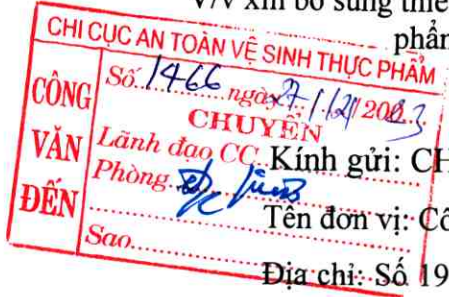 V/v xin bổ sung thiế
phẩm
CHI CỤC AN TOÀN VỆ SINH THỰC PHẨM
CÔNG VĂN ĐẾN
Số 1466 ngày 27/12/2023
CHUYỂN
Lãnh đạo CC
Phòng
Sao
Kính gửi: CH
Tên đơn vị: Cô
Địa chỉ: Số 19